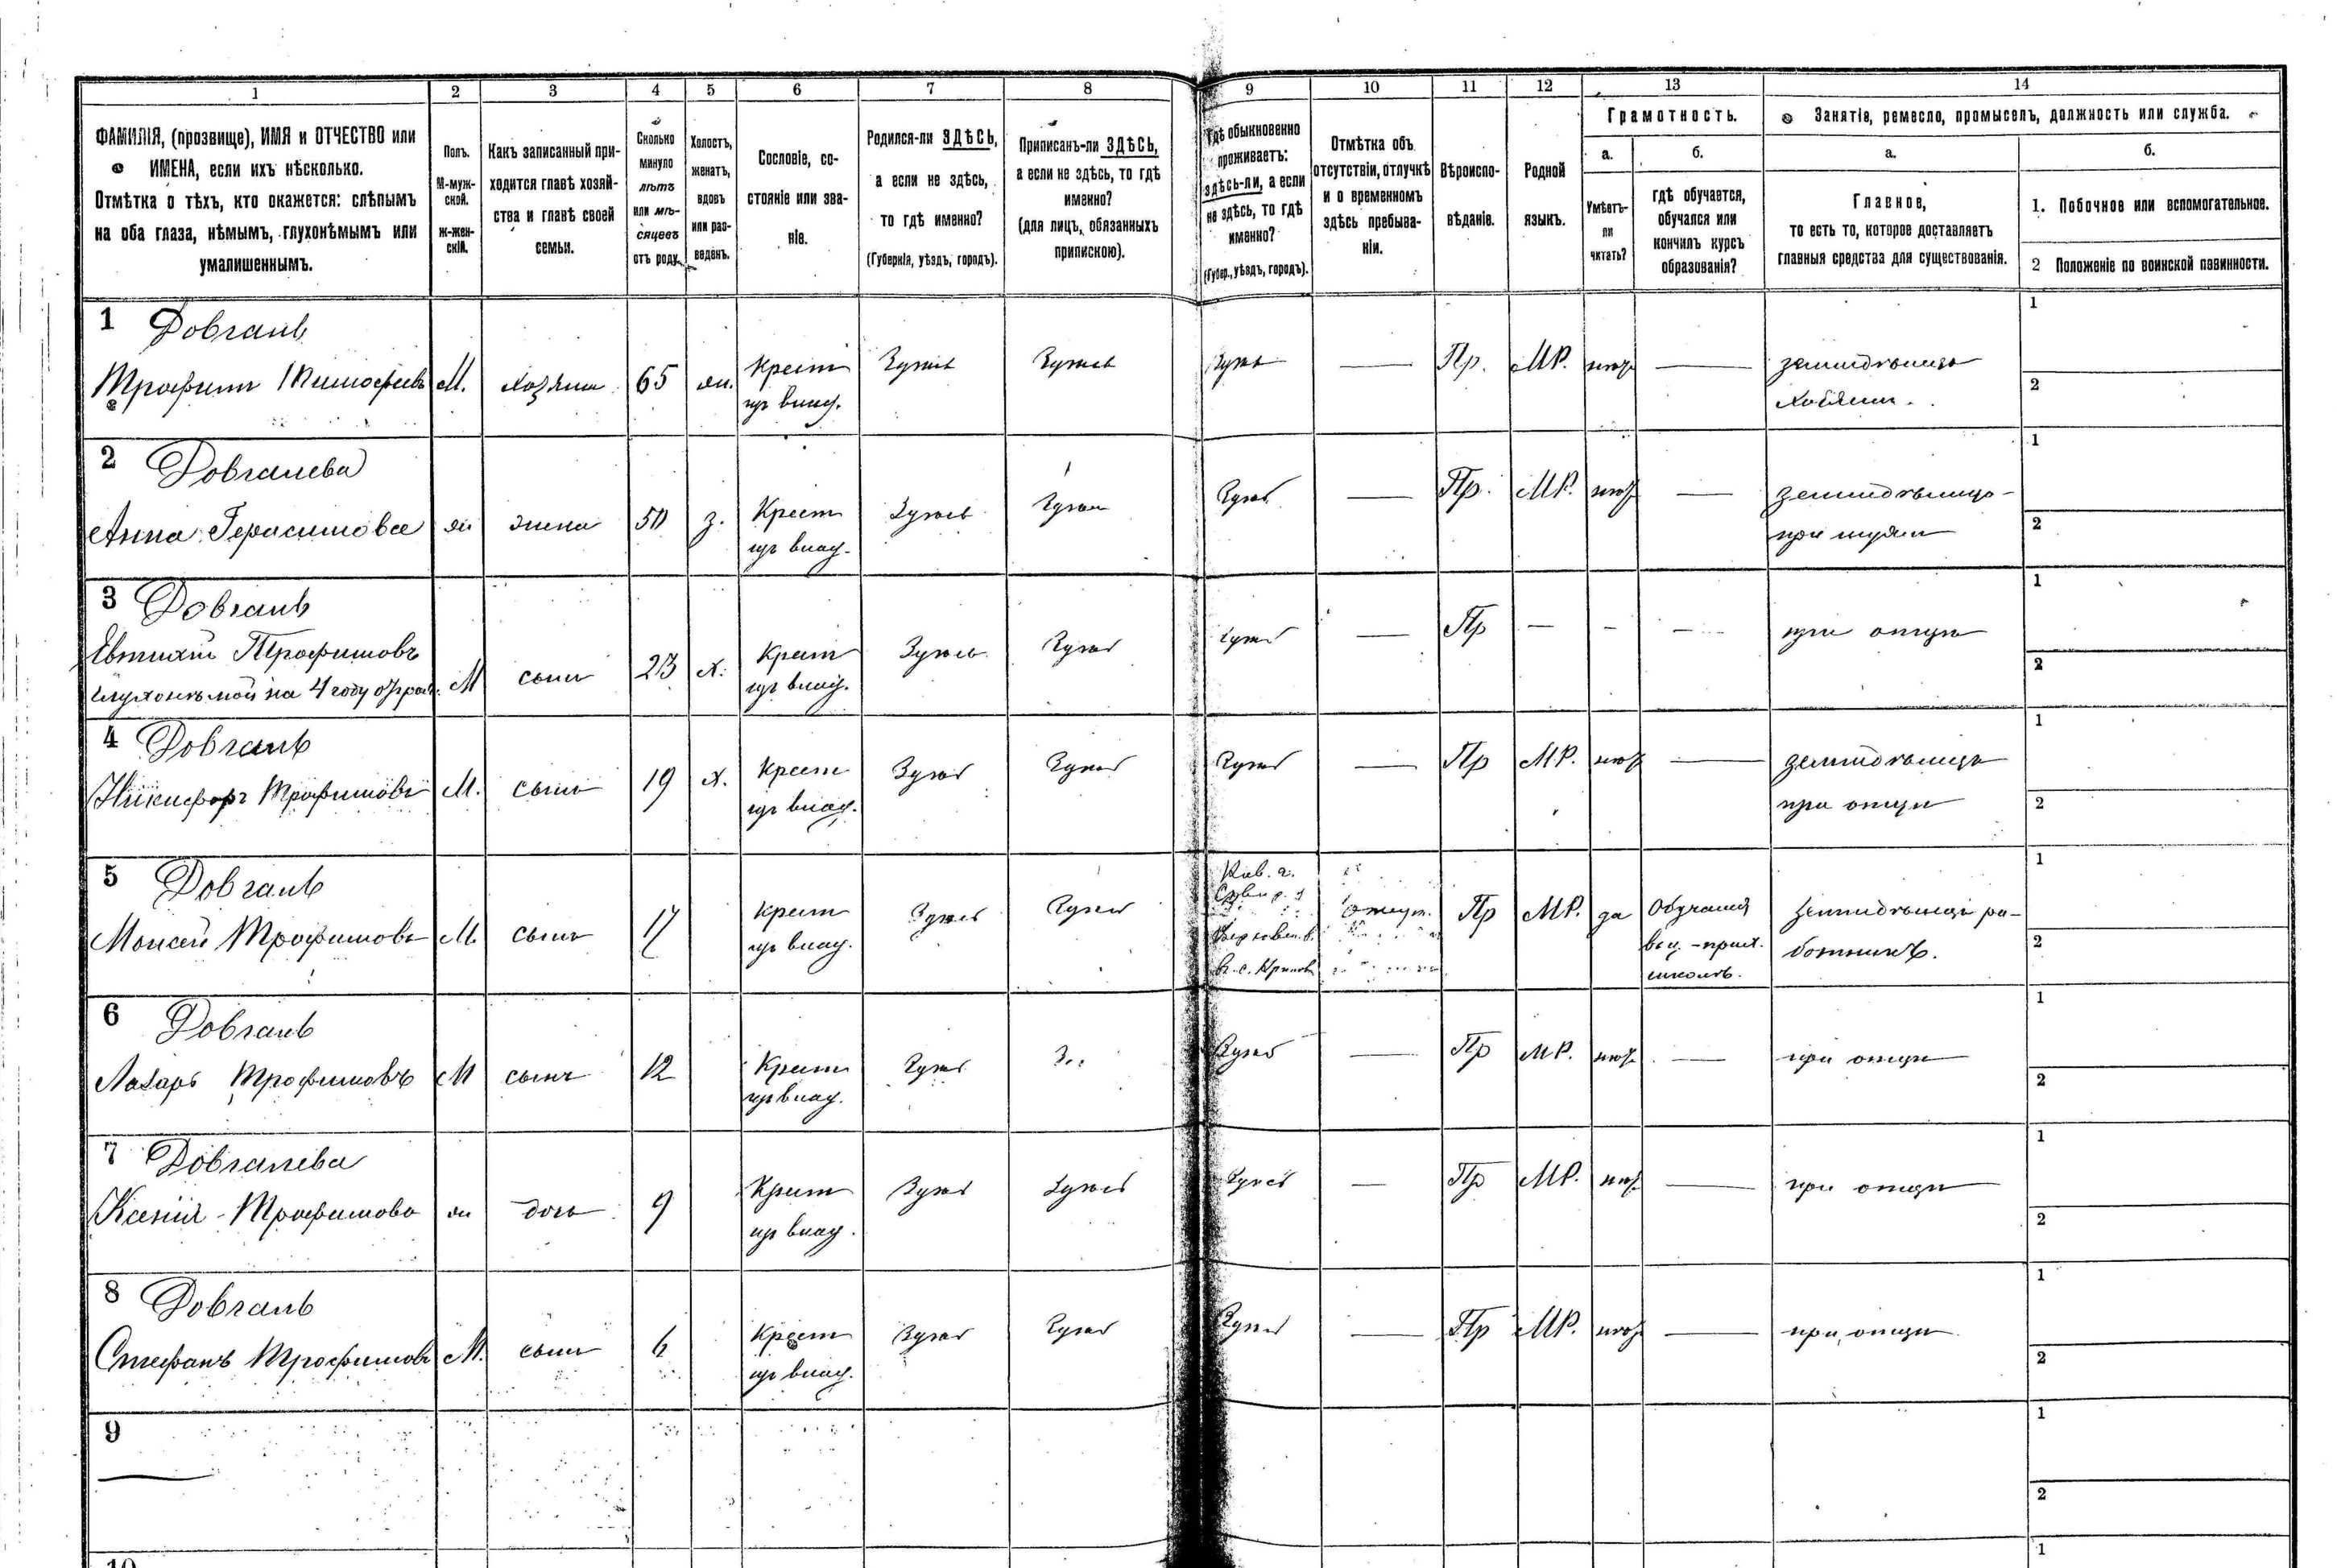 1 2 3 4 5 6 7 8 9 10 11 12 13 14
ФАМИЛІЯ, (прозвище), ИМЯ и ОТЧЕСТВО или
ИМЕНА, если ихъ нѣсколько.
Отмѣтка о тѣхъ, кто окажется: слѣпымъ
на оба глаза, нѣмымъ, глухонѣмымъ или
умалишеннымъ.
Полъ.
М-муж-
ской.
ж-жен-
скій.
Какъ записанный при-
ходится главѣ хозяй-
ства и главѣ своей
семьи.
Сколько
минуло
лѣтъ
или мѣ-
сяцевъ
отъ роду.
Холостъ,
женатъ,
вдовъ
или раз-
веденъ.
Сословіе, со-
стояніе или зва-
ніе.
Родился-ли ЗДѢСЬ,
а если не здѣсь,
то гдѣ именно?
(Губернія, уѣздъ, городъ).
Приписанъ-ли ЗДѢСЬ,
а если не здѣсь, то гдѣ
именно?
(для лицъ, обязанныхъ
припискою).
Гдѣ обыкновенно
проживаетъ:
здѣсь-ли, а если
не здѣсь, то гдѣ
именно?
(Губер., уѣздъ, городъ).
Отмѣтка объ
отсутствіи, отлучкѣ
и о временномъ
здѣсь пребыва-
ніи.
Вѣроиспо-
вѣданіе.
Родной
языкъ.
Грамотность.
а.
Умѣетъ-
ли
читать?
б.
гдѣ обучается,
обучался или
кончилъ курсъ
образованія?
Занятіе, ремесло, промыселъ, должность или служба.
а.
Главное,
то есть то, которое доставляетъ
главныя средства для существованія.
б.
1. Побочное или вспомогательное.
2 Положеніе по воинской повинности.
1 Довгань
Трофимъ Тимофеевъ М. хозяинъ 65 ж. Крест
изъ влад. Здѣсь Здѣсь Здѣсь — Пр. МР. нѣтъ — земледѣлецъ
хозяинъ.
1
2
2 Довгалева
Анна Герасимова ж жена 50 з. Крест
изъ влад. Здѣсь Здѣсь Здѣсь — Пр. МР. нѣтъ — земледѣлецъ
при мужѣ
1
2
3 Довгань
Евтихій Трофимовъ
глухонѣмой на 4 году М сынъ 23 х. Крест
изъ влад. Здѣсь Здѣсь Здѣсь — Пр — - — при отцѣ
1
2
4 Довгань
Никифоръ Трофимовъ М. сынъ 19 х. Крест
изъ влад. Здѣсь Здѣсь Здѣсь — Пр МР. нѣтъ — земледѣлецъ
при отцѣ
1
2
5 Довгань
Моисей Трофимовъ М. сынъ 17 Крест
изъ влад. Здѣсь Здѣсь Кіев. г.
Сквир. у
Пр МР. да Обучался
въ ц.-прих.
школѣ. земледѣлецъ ра-
ботникъ.
1
2
6 Довгань
Лазарь Трофимовъ М сынъ 12 Крест
изъ влад. Здѣсь З.. Здѣсь — Пр МР. нѣтъ — при отцѣ
1
2
7 Довгалева
Ксенія Трофимова ж дочь 9 Крест
изъ влад. Здѣсь Здѣсь Здѣсь — Пр МР. нѣтъ — при отцѣ
1
2
8 Довгань
Стефанъ Трофимовъ М. сынъ 6 Крест
изъ влад. Здѣсь Здѣсь Здѣсь — Пр МР. нѣтъ — при отцѣ
1
2
9
1
2
10
1